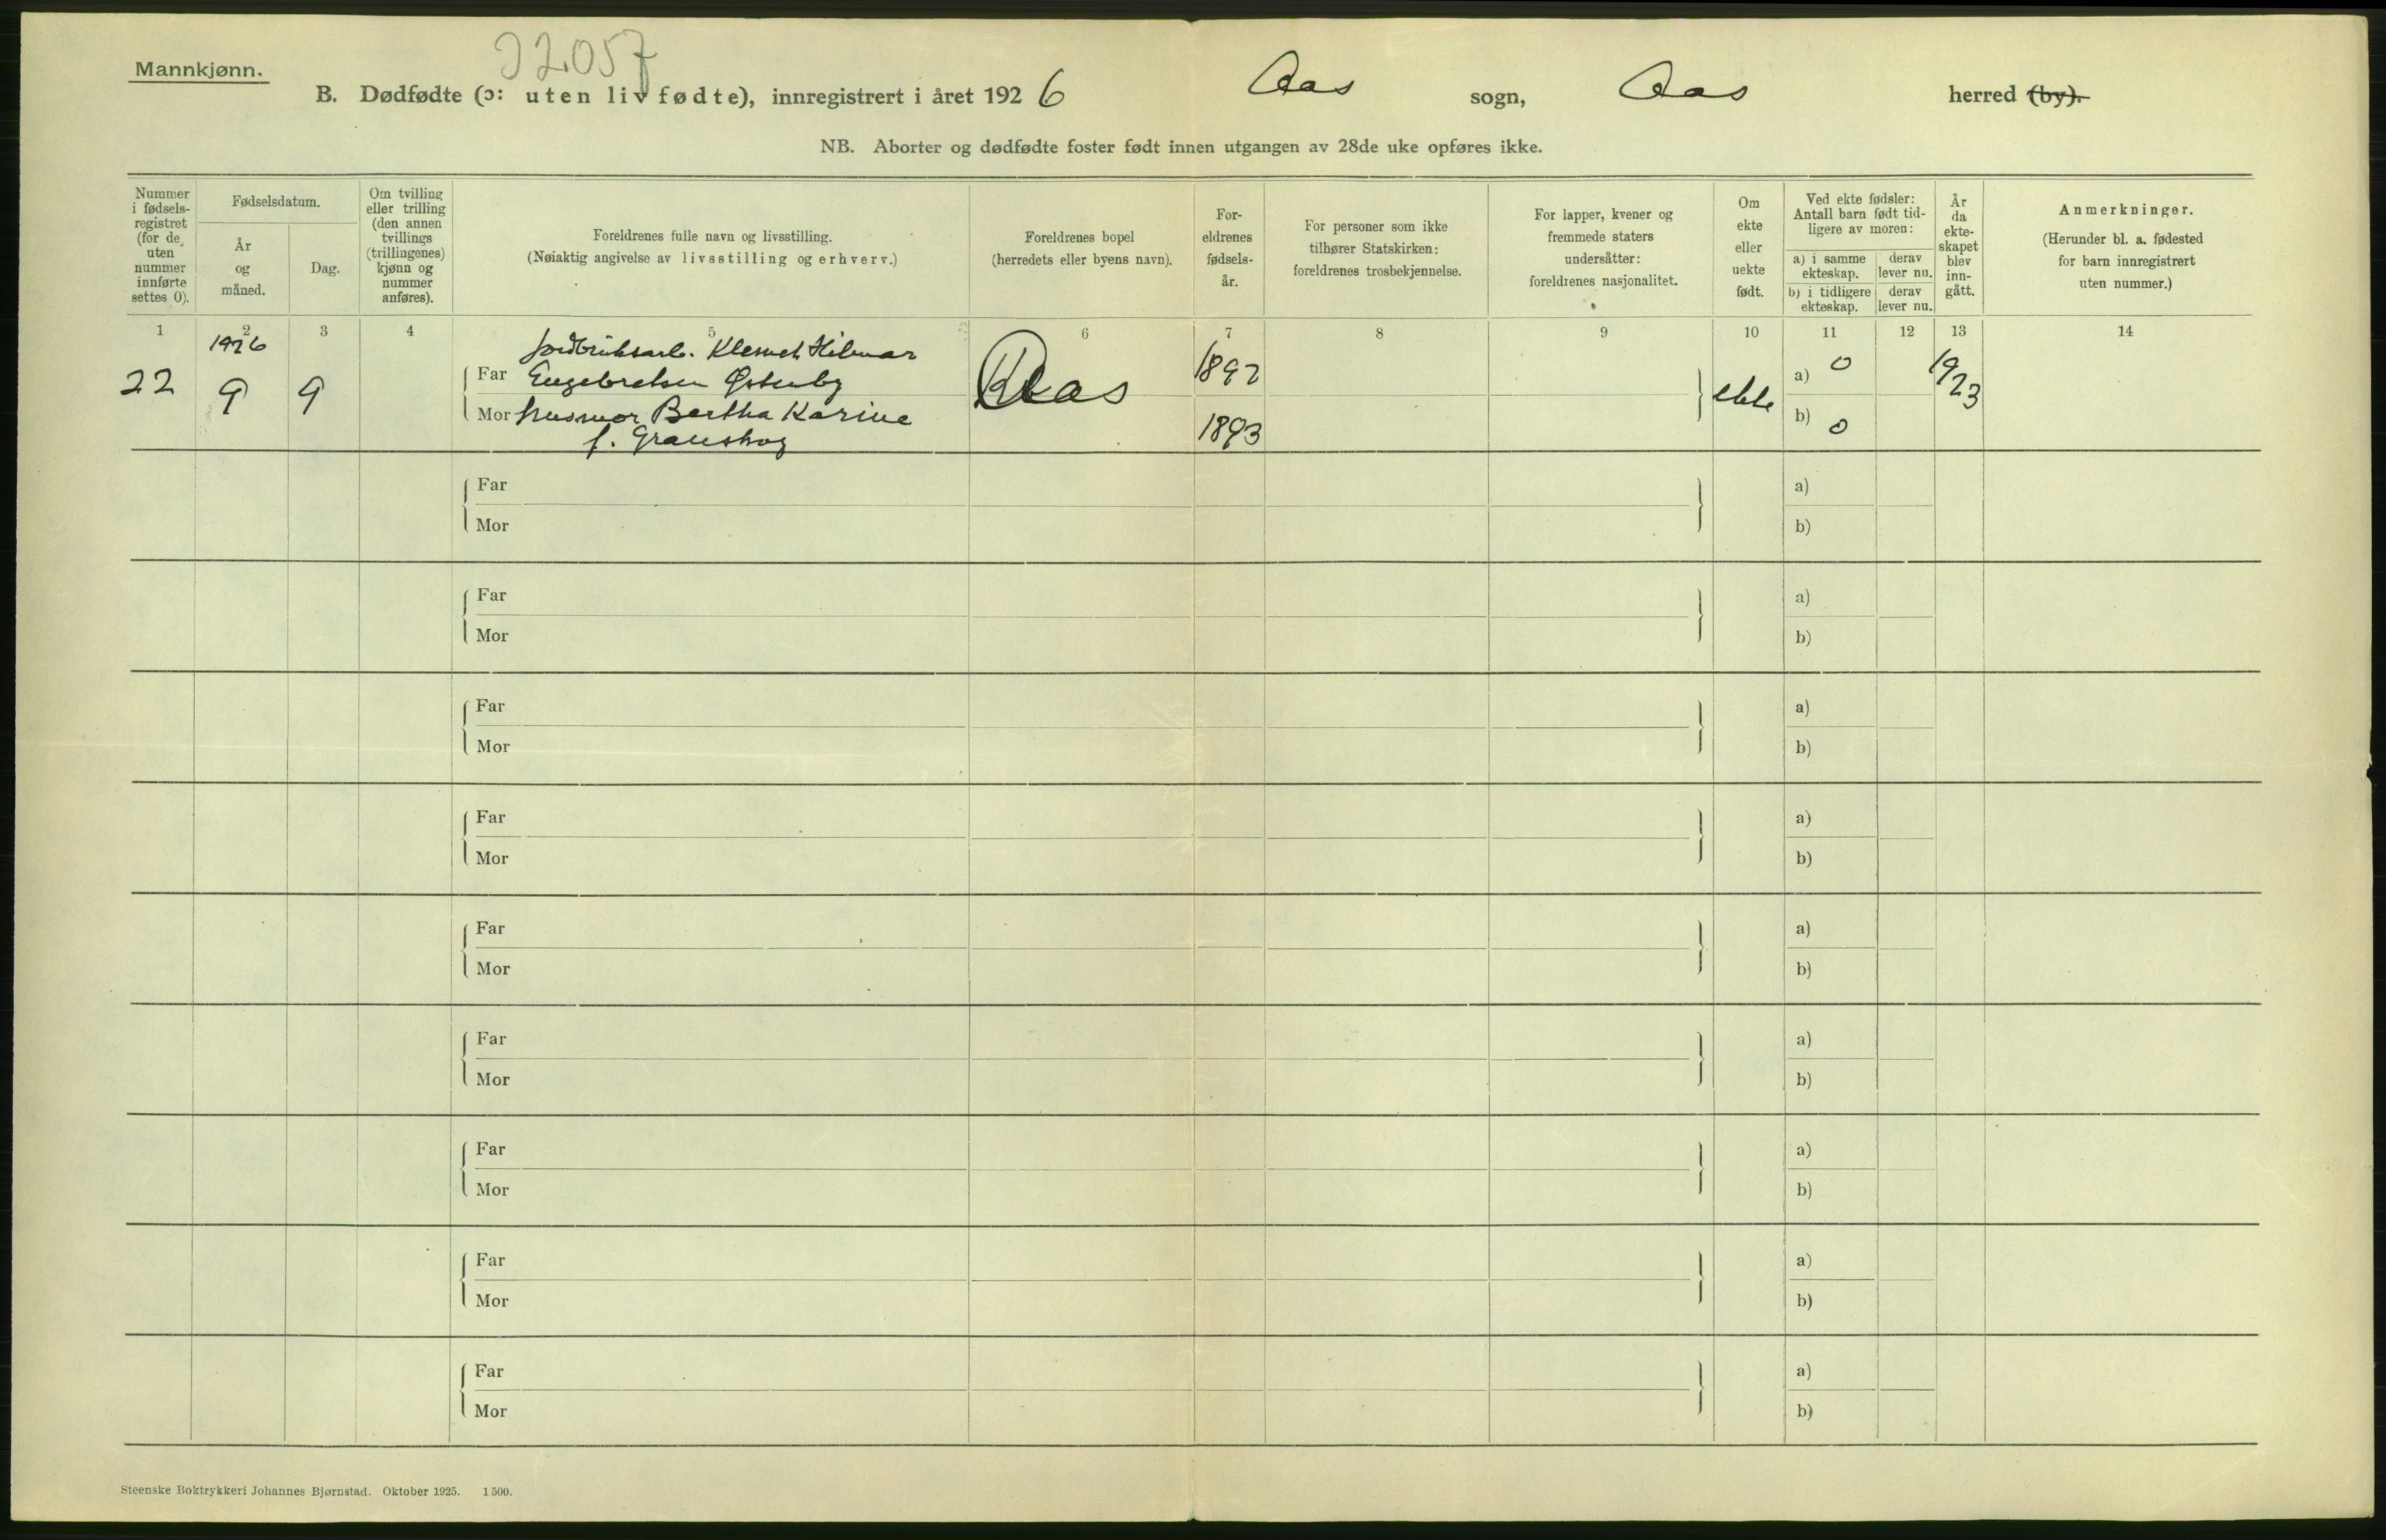 Mannkjønn.
22057
B. Dødfødte (ɔ: uten liv fødte), innregistrert i året 1926 Aas sogn, Aas herred (by).
NB. Aborter og dødfødte foster født innen utgangen av 28de uke opføres ikke.
Nummer
i fødsels-
registret
(for de
uten
nummer
innførte
settes 0).
Fødselsdatum.
År
og
måned.
Dag.
Om tvilling
eller trilling
(den annen
tvillings
(trillingenes)
kjønn og
nummer
anføres).
Foreldrenes fulle navn og livsstilling.
(Nøiaktig angivelse av livsstilling og erhverv.)
Foreldrenes bopel
(herredets eller byens navn).
For-
eldrenes
fødsels-
år.
For personer som ikke
tilhører Statskirken:
foreldrenes trosbekjennelse.
For lapper, kvener og
fremmede staters
undersåtter:
foreldrenes nasjonalitet.
Om
ekte
eller
uekte
født.
Ved ekte fødsler:
Antall barn født tid-
ligere av moren:
a) i samme
ekteskap.
derav
lever nu.
b) i tidligere
ekteskap.
derav
lever nu.
År
da
ekte-
skapet
blev
inn-
gått.
Anmerkninger.
(Herunder bl. a. fødested
for barn innregistrert
uten nummer.)
1 2 3 4 5 6 7 8 9 10 11 12 13 14
1926
22 9 9
jordbruksarb. Klemet Hilmar
Far Engebretsen Østenby
Mor husmor Bertha Karine
f. Graneshog
Aas
1892
1893
ekte
a) 0
b) 0
1923
Far
Mor
a)
b)
Far
Mor
a)
b)
Far
Mor
a)
b)
Far
Mor
a)
b)
Far
Mor
a)
b)
Far
Mor
a)
b)
Far
Mor
a)
b)
Far
Mor
a)
b)
Far
Mor
a)
b)
Steenske Boktrykkeri Johannes Bjørnstad. Oktober 1925. 1500.